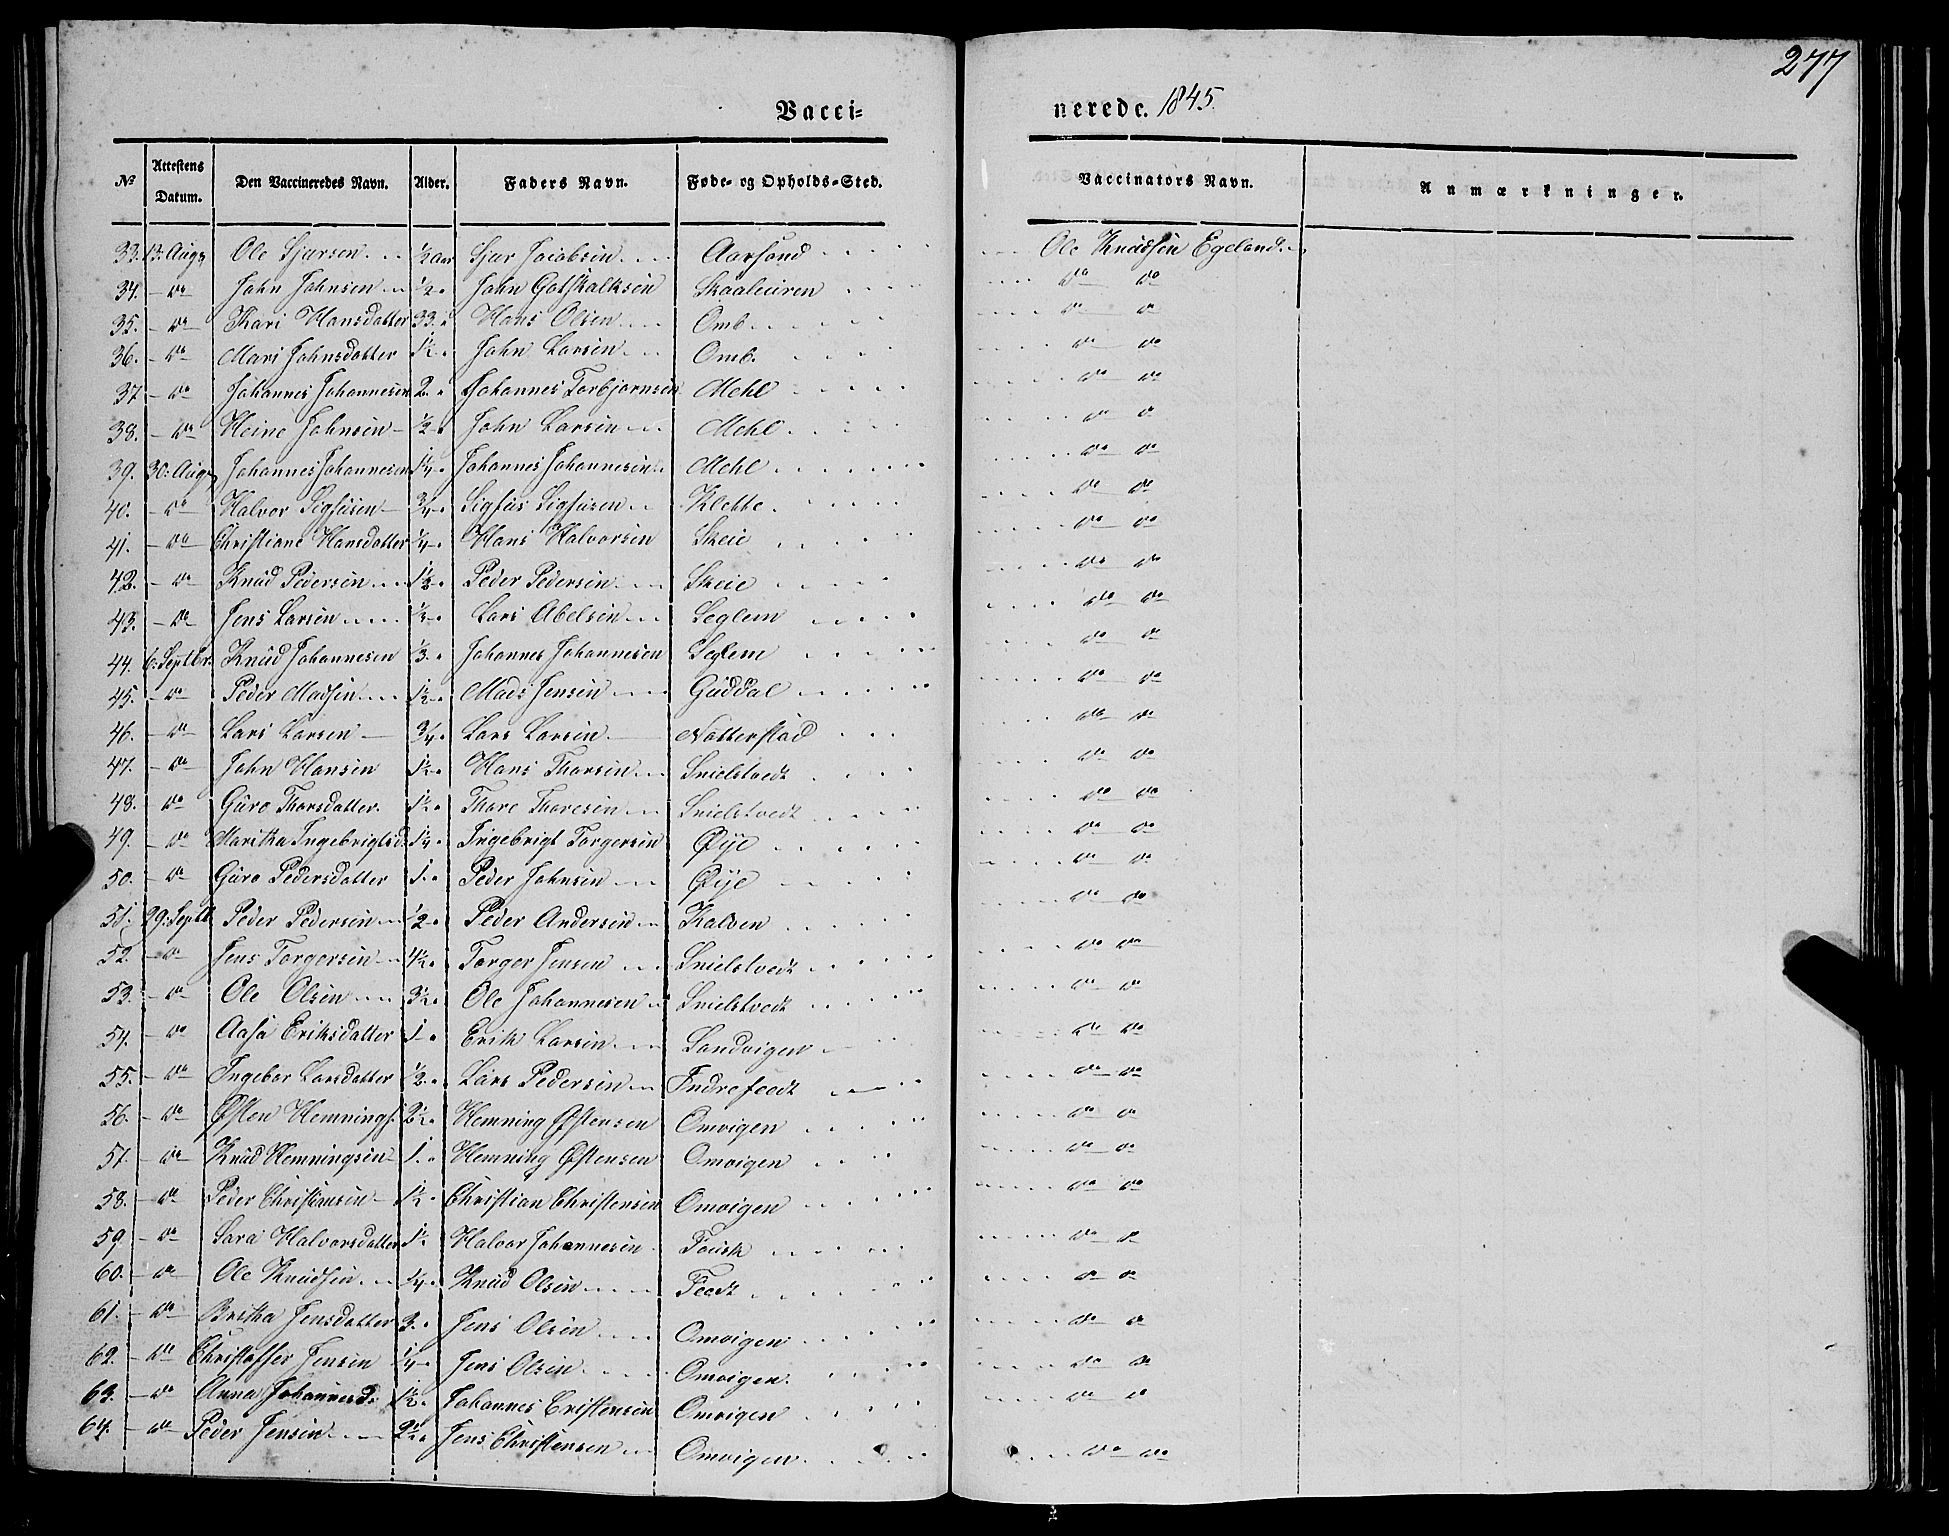 277
Vacci= nerede. 1845.
No Attestens Datum. Den Vaccineredes Navn. Alder. Faders Navn. Føde- og Opholds-Sted. Vaccinators Navn. Anmærkninger.
33. 13. Aug. Ole Sjursen 1/2 Aar Sjur Jacobsen Aarsand Ole Knudsen Egeland
34. do John Johnsen 1/2 John Gotskalksen Skaaleuren do do
35. do Kari Hansdatter 33. Hans Olsen Omb do do
36. do Mari Johnsdatter 1 1/2 John Larsen Omb. do do
37 do Johannes Johannesen 2. Johannes Torbjørnsen Mehl do do
38. do Heine Johnsen 1/2 John Larsen Mehl do do
39. 30. Aug. Johannes Johannesen 1/4 Johannes Johannesen Mehl do do
40. do Halvor Sigfusen 3/4 Sigfus Sigfusen Klette do do
41. do Christiane Hansdatter 1/4 Hans Halvorsen Skeie do do
42. do Knud Pedersen 1 1/2 Peder Pedersen Skeie do do
43. do Jens Larsen 1/2 Lars Abelsen Seglem do do
44. 6. Septbr. Knud Johannesen 1/3 Johannes Johannesen Seglem do do
45. do Peder Madsen 1 1/2 Mads Jensen Guddal do do
46. do Lars Larsen 3/4 Lars Larsen Natterstad do do
47. do John Hansen 1 1/2 Hans Thorsen Snielstvedt do do
48. do Guro Thorsdatter. 1 1/2 Thore Thoresen Snielstvedt do do
49. do Maritha Ingebrigtsd. 1/4 Ingebrigt Torgersen Øije do do
50. do Guro Pedersdatter 1. Peder Johnsen Øije do do
51. 29. Septb. Peder Pedersen 1/2 Peder Andersen Kalven do do
52. do Jens Torgersen 4 1/2 Torger Jensen Snielstvedt do do
53. do Ole Olsen 3 1/2 Ole Johannesen Snielstvedt do do
54. do Aasa Eriksdatter 1 Erik Larsen Sandvigen do do
55. do Ingebor Larsdatter 1/2 Lars Pedersen Indrefeedt do do
56. do Østen Hemnings. 2 1/2 Hemning Østensen Omvigen do do
57. do Knud Hemningsen 1. Hemning Østensen Omvigen do do
58. do Peder Christiansen 1 1/2 Christian Christensen Omvigen do do
59. do Sara Halvorsdatter 1 1/2 Halvor Johannesen do do
60. do Ole Knudsen 1/4 Knud Olsen Feedt do do
61. do Britha Jensdatter 3. Jens Olsen Omvigen do do
62. do Christoffer Jensen 1/4 Jens Olsen Omvigen do do
63. do Anna Johannesd. 1 1/2 Johannes Cristensen Omvigen do do
64. do Peder Jensen 2 1/2 Jens Christensen Omvigen do do